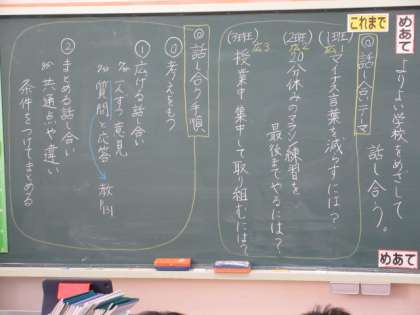 めあて
これまで
よりよい学校をめざして
話し合う。
めあて
◎話し合いテーマ
(1班)
マイナス言葉を減らすには?
(2班)
広2
20分休みのマラソン練習を
最後までやるには?
(3班)
広3
授業中集中して取り組むには?
◎話し合う手順
⓪考えをもつ
①広げる話し合い
一人ずつ意見
質問と応答
教P131
②まとめる話し合い
共通点や違い
条件をつけてまとめる